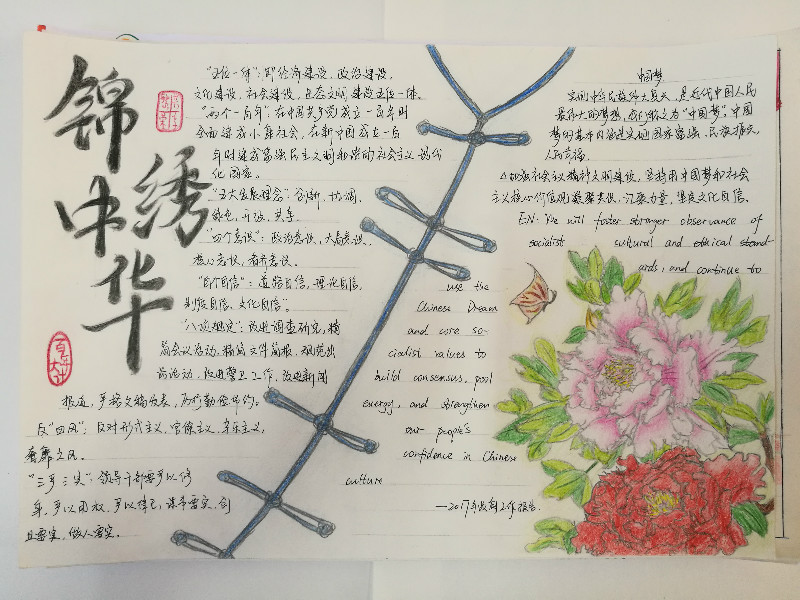 锦绣中华
百年大计
"五位一体"：即经济建设，政治建设，
文化建设，社会建设，生态文明建设五位一体。
"两个一百年"：在中国共产党成立一百年时
全面建成小康社会，在新中国成立一百
年时建成富强民主文明和谐的社会主义现代
化国家。
"五大发展理念"：创新，协调，
绿色，开放，共享
"四个意识"：政治意识，大局意识，
核心意识，看齐意识。
"四个自信"：道路自信，理论自信，
制度自信，文化自信"。
"八项规定"：改进调查研究，精
简会议活动，精简文件简报，规范出
访活动，改进警卫工作，改进新闻
报道，严格文稿发表，厉行勤俭节约。
反"四风"：反对形式主义，官僚主义，享乐主义，
奢靡之风。
"三严三实"：领导干部要严以修
身，严以用权，严以律己，谋事要实，创
业要实，做人要实。
中国梦
实现中华民族伟大复兴，是近代中国人民
最伟大的梦想，我们称之为"中国梦"，中国
梦的基本内涵是实现国家富强，民族振兴，
人民幸福。
加强社会主义精神文明建设，坚持用中国梦和社会
主义核心价值观凝聚共识，汇聚力量，坚定文化自信。
EN: We will foster stronger observance of
socialist cultural and ethical stand-
ards, and continue to
use the
Chinese Dream
and core so-
cialist values to
build consensus, pool
energy, and strengthen
our people's
confidence in Chinese
culture
—2017年政府工作报告.